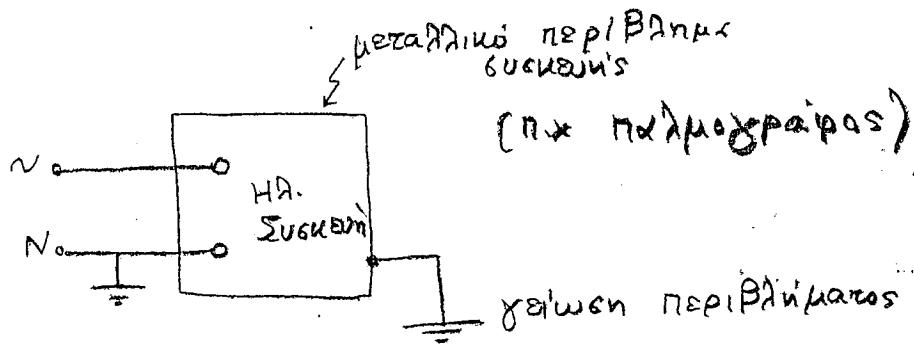 μεταλλικό περίβλημα
συσκευής
(π.χ παλμογράφος)
~
Ηλ.
Συσκευή
N
γείωση περιβλήματος